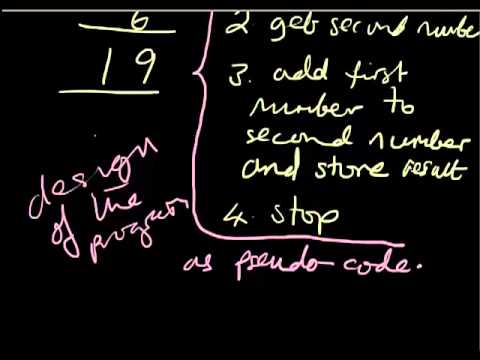 6
19
2 get second numbe
3. add first
number to
second number
and store result
4. stop
design
of the
program
as pseudo code.